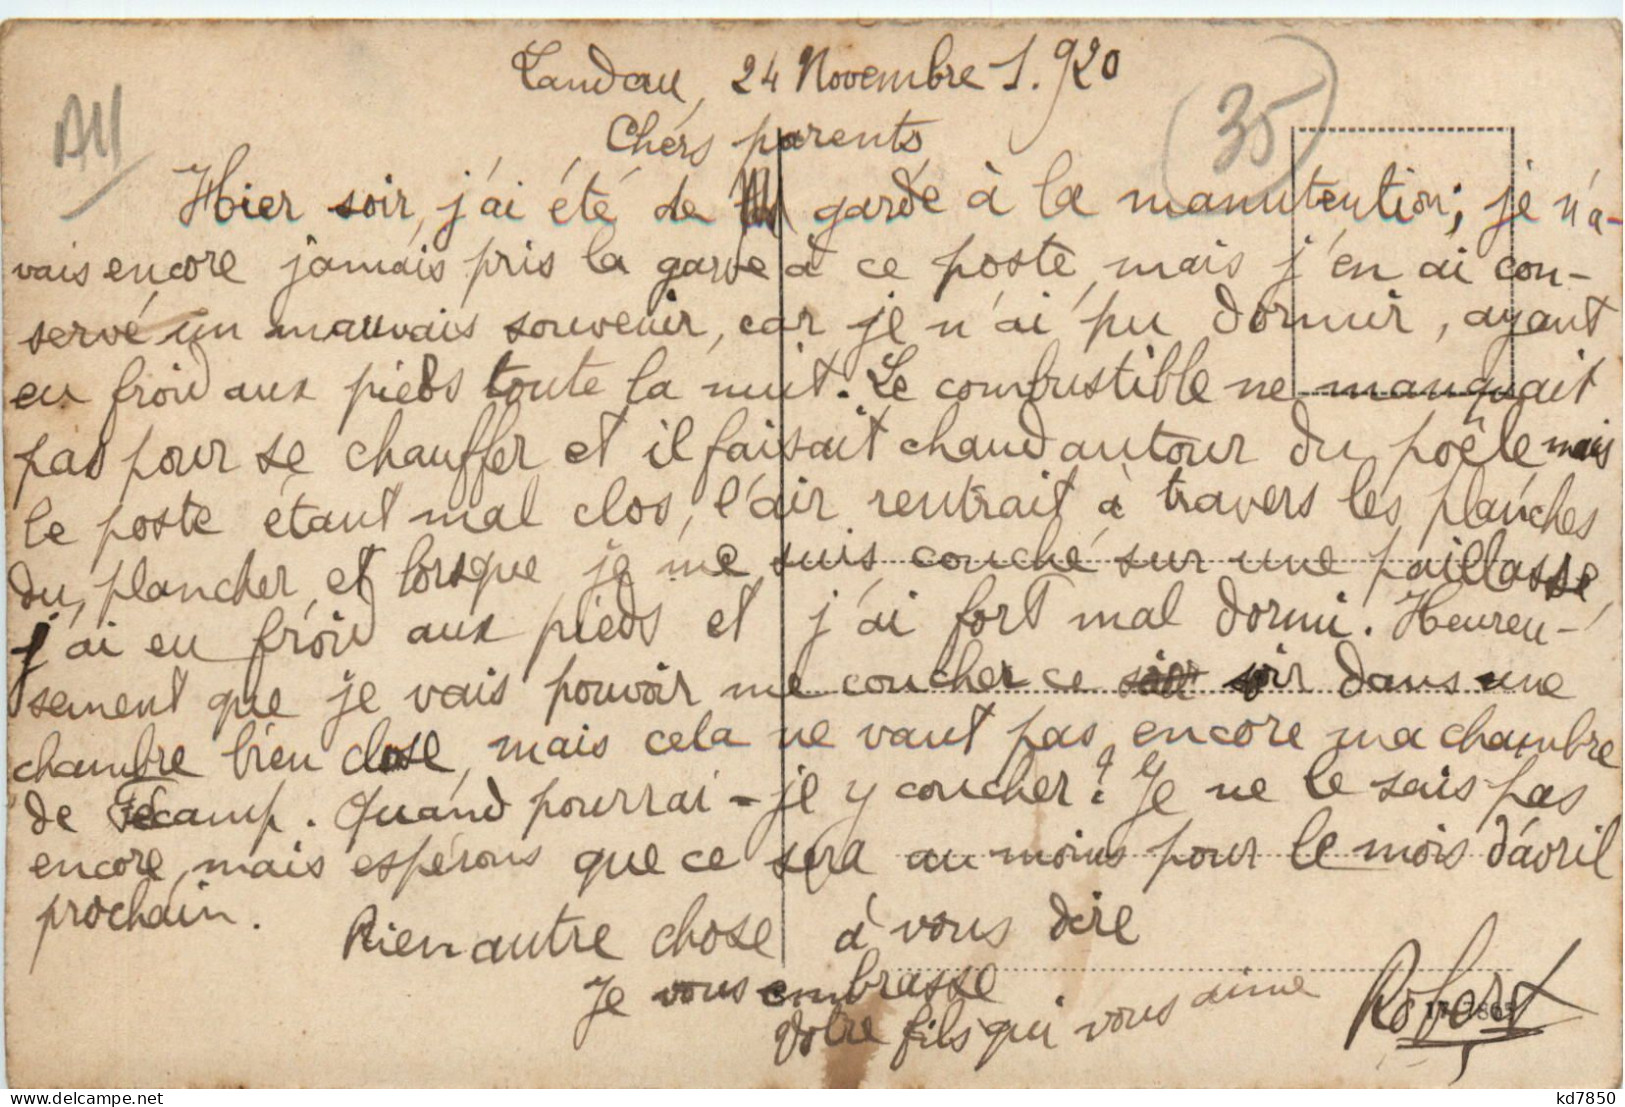 Landau, 24 Novembre 1.920
All
(35)
Chers parents
Hier soir, j'ai été de garde à la manutention; je n'a-
vais encore jamais pris la garde à ce poste, mais j'en ai con-
servé un mauvais souvenir, car je n'ai pu dormir, ayant
eu froid aux pieds toute la nuit. Le combustible ne manquait
pas pour se chauffer et il faisait chaud autour du poêle mais
le poste étant mal clos, l'air rentrait à travers les planches
du plancher, et lorsque je me suis couché sur une paillasse,
j'ai eu froid aux pieds et j'ai fort mal dormi. Heureu-
sement que je vais pouvoir me coucher ce soir dans une
chambre bien close, mais cela ne vaut pas encore ma chambre
de Fécamp. Quand pourrai-je y coucher? Je ne le sais pas
encore, mais espérons que ce sera au moins pour le mois d'avril
prochain.
Rien autre chose à vous dire
Je vous embrasse
Votre fils qui vous aime
Robert
kd7850